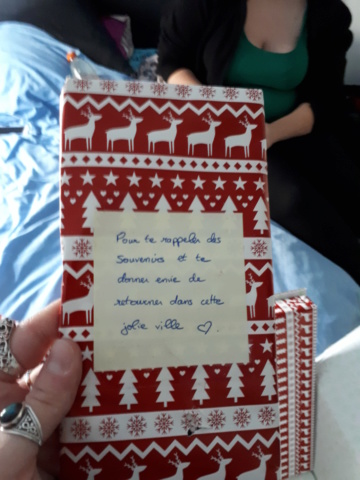 Pour te rappeler des
souvenirs et te
donner envie de
retourner dans cette
jolie ville ♡.